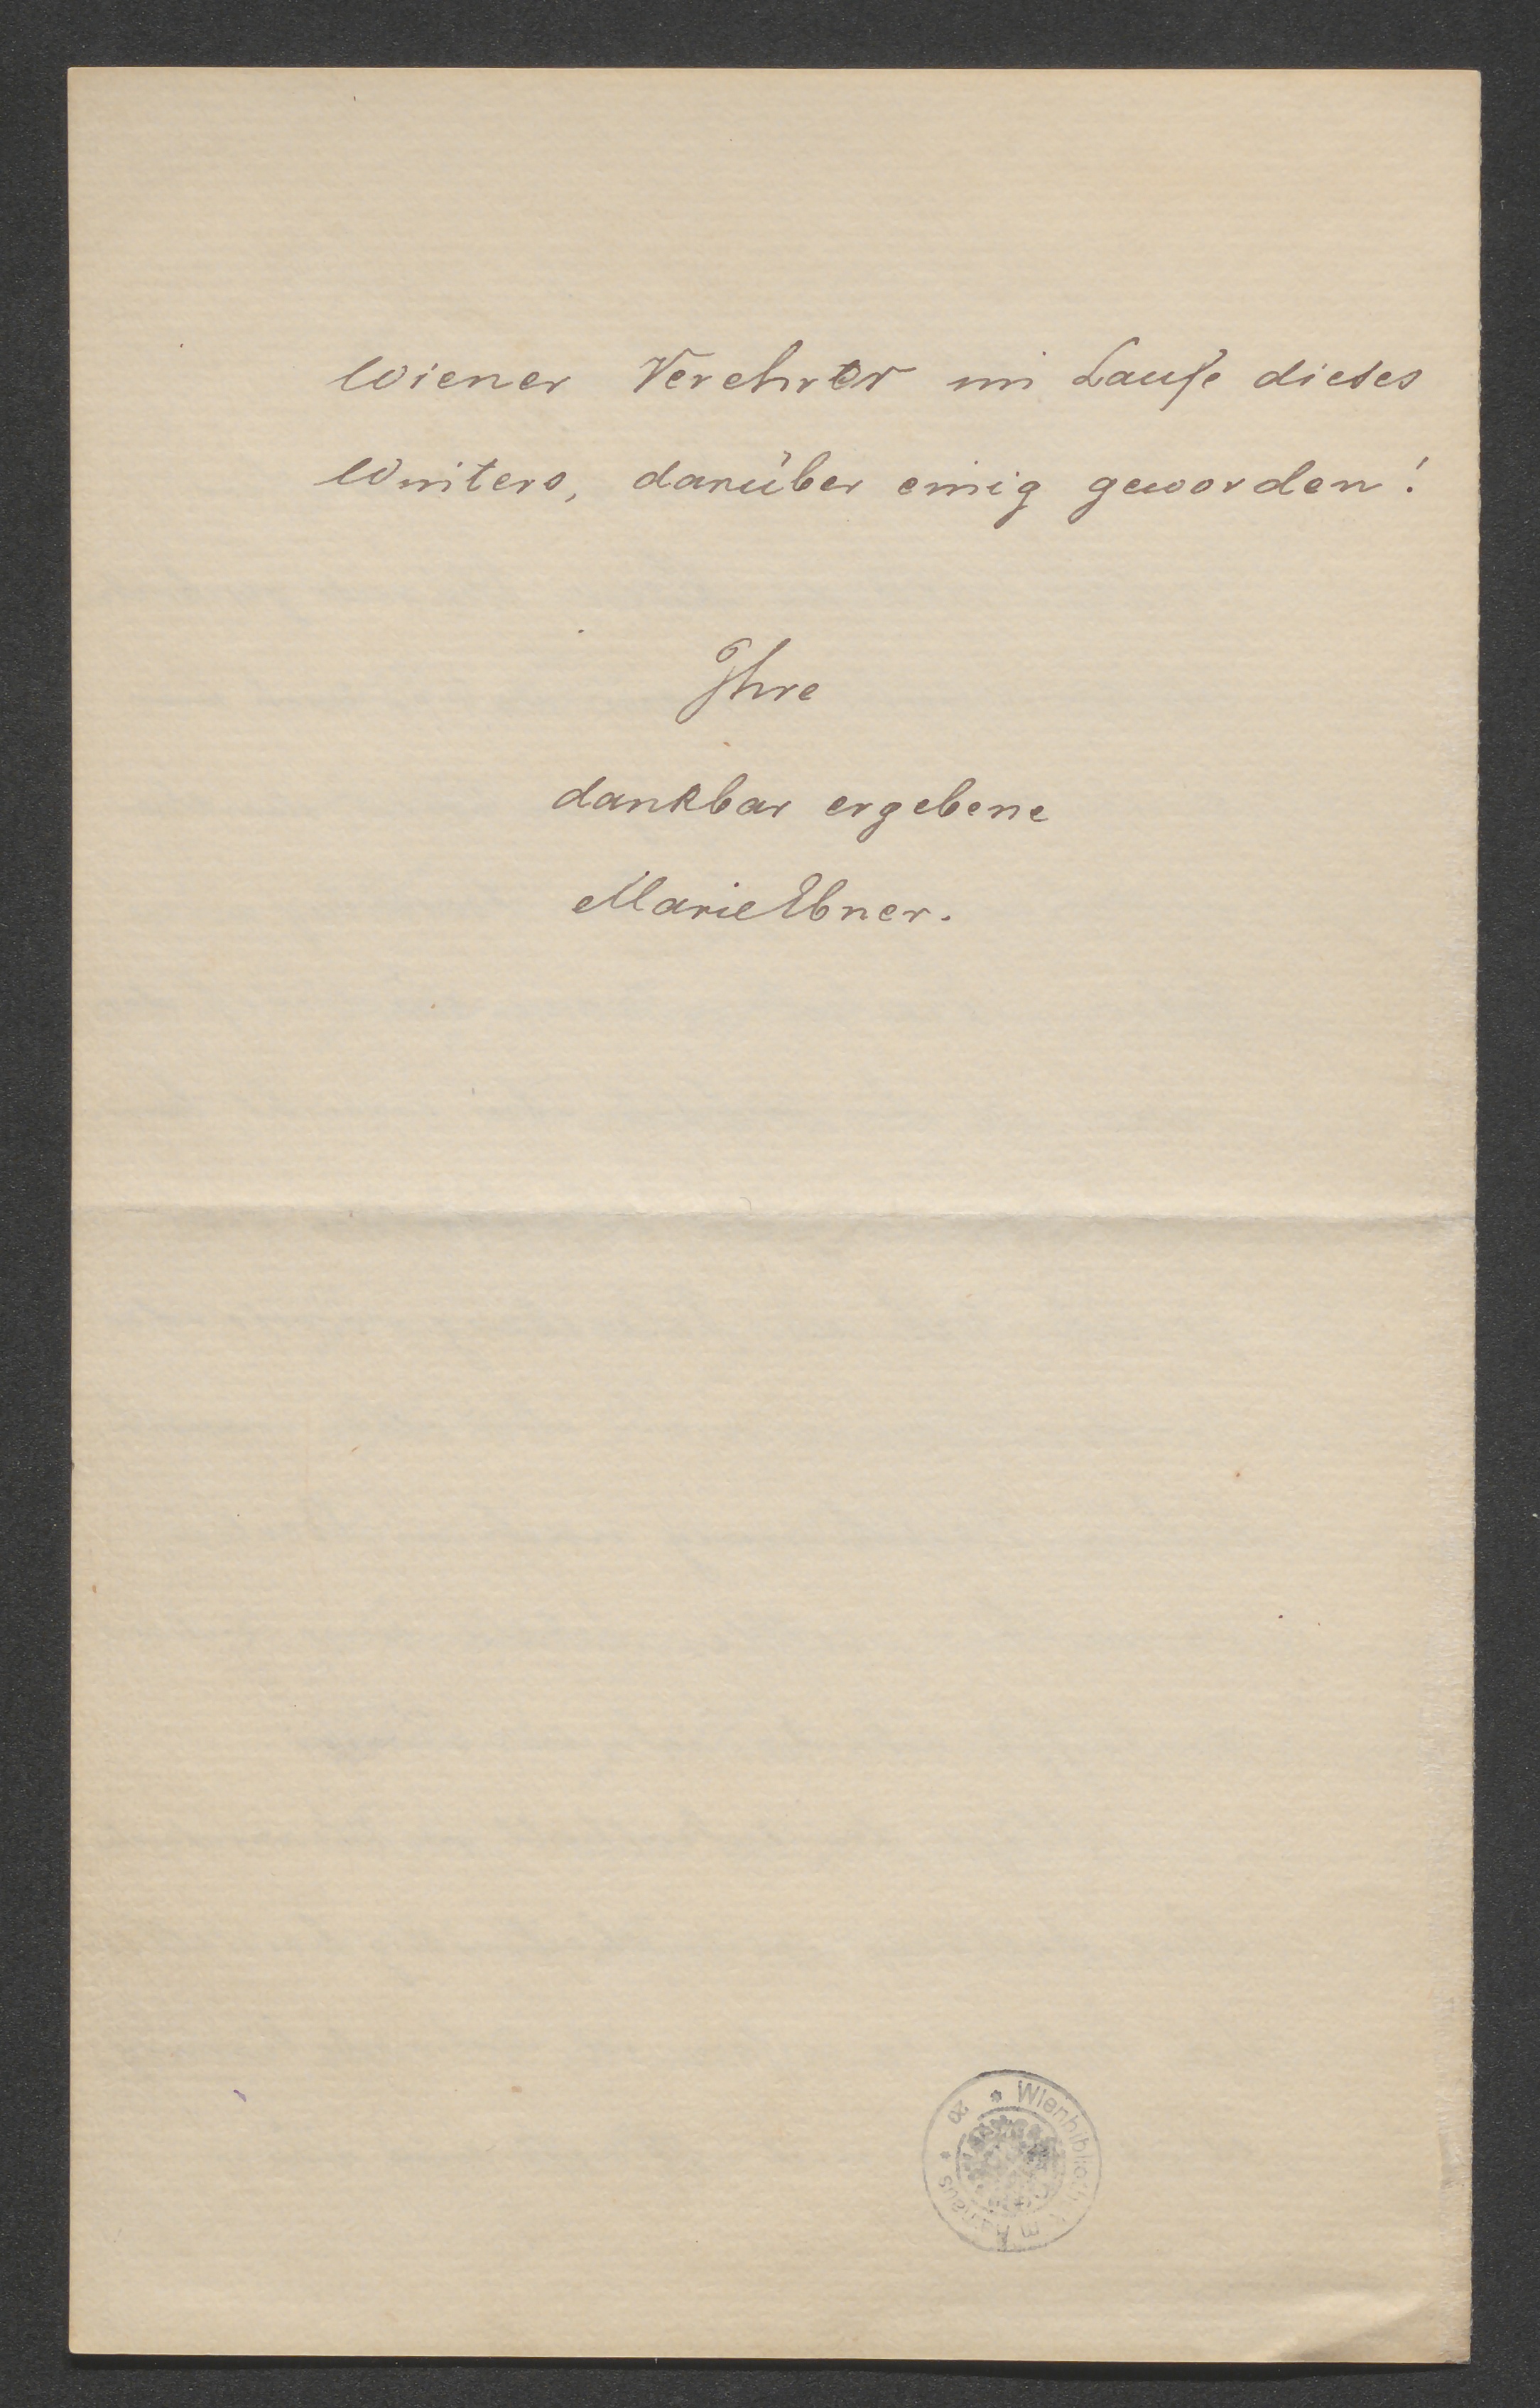 Wiener Verehrer im Laufe dieses
Winters, darüber einig geworden!
Ihre
dankbar ergebene
Marie Ebner.
* Wienbibliothek im Rathaus * 20